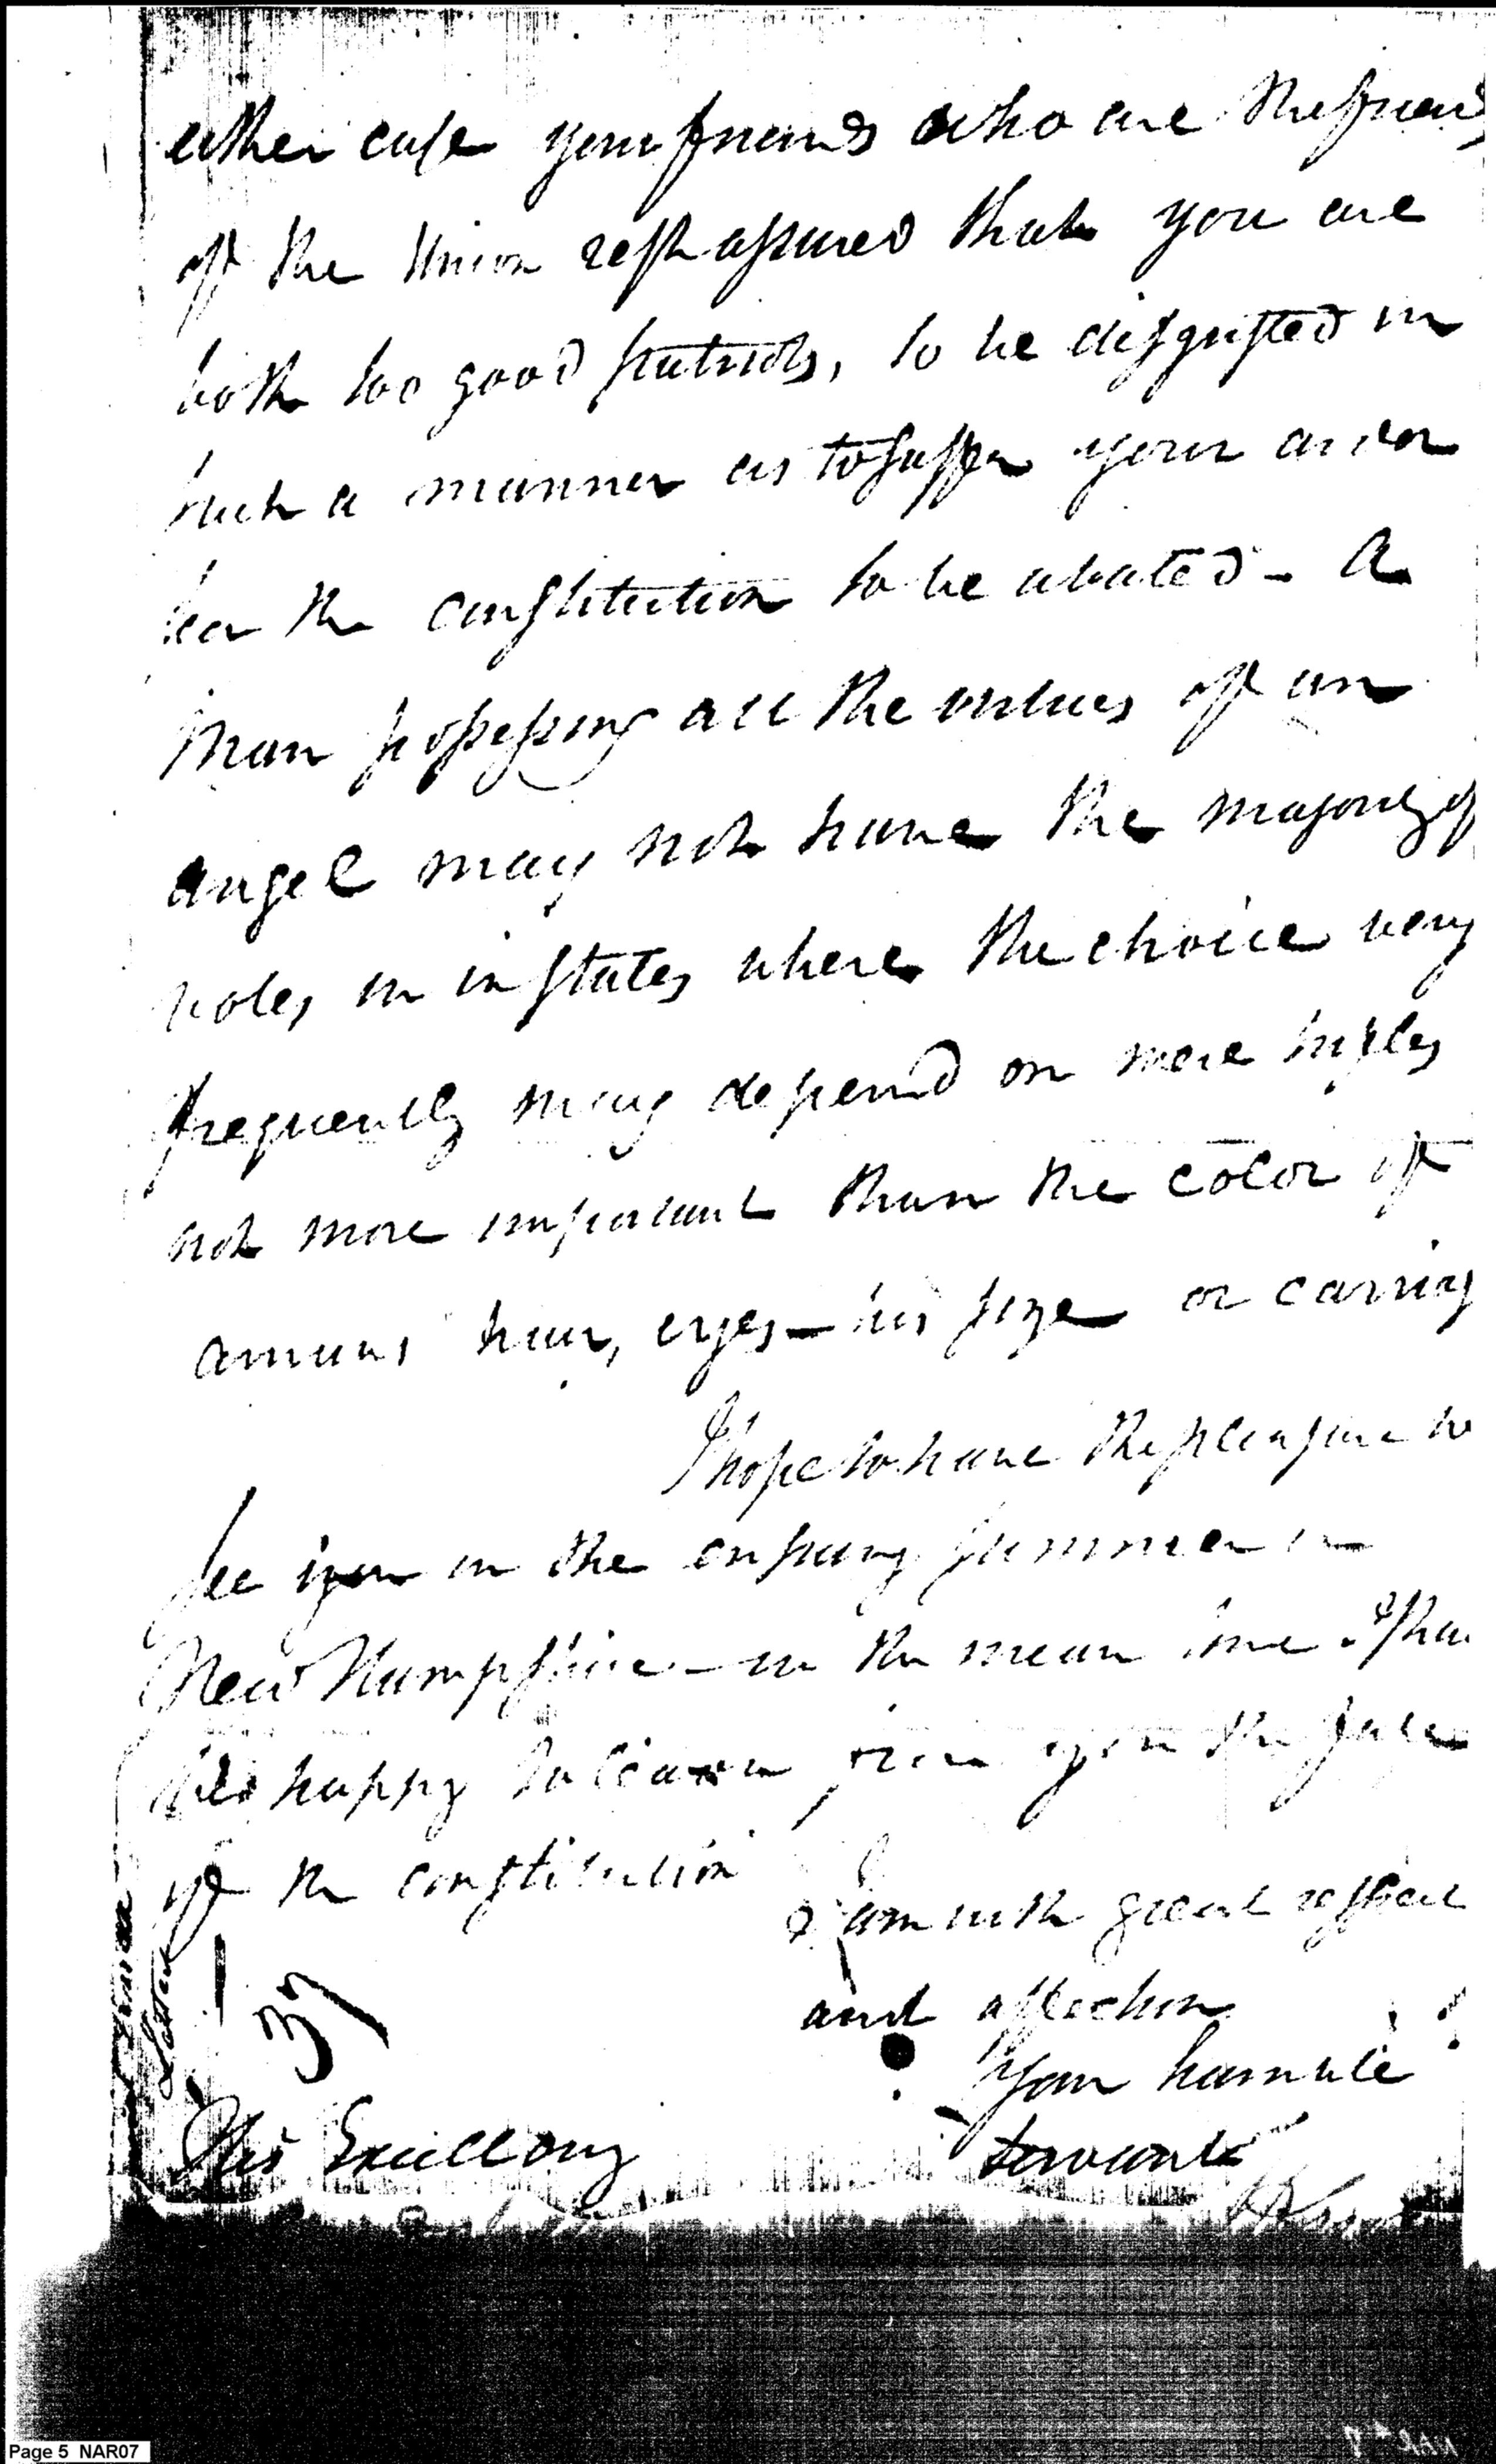 either case your friends who are the friends
of the Union rest assured that you are
both too good patriots, to be disgusted in
such a manner as to suffer your ardor
for the constitution to be abated - A
man possessing all the virtues of an
angel may not have the majority of
votes in in states where the choice very
frequently may depend on mere trifles
not more important than the color of
a mans hair, eyes - his size or carriag
I hope to have the pleasure to
see you in the ensuing summer in
New Hampshire - in the mean time I shal
be happy to learn from you the fate
of the constitution
I am with great respect
and affection
Your humble
Servant
37
His Excellency
H Knox
Page 5 NAR07